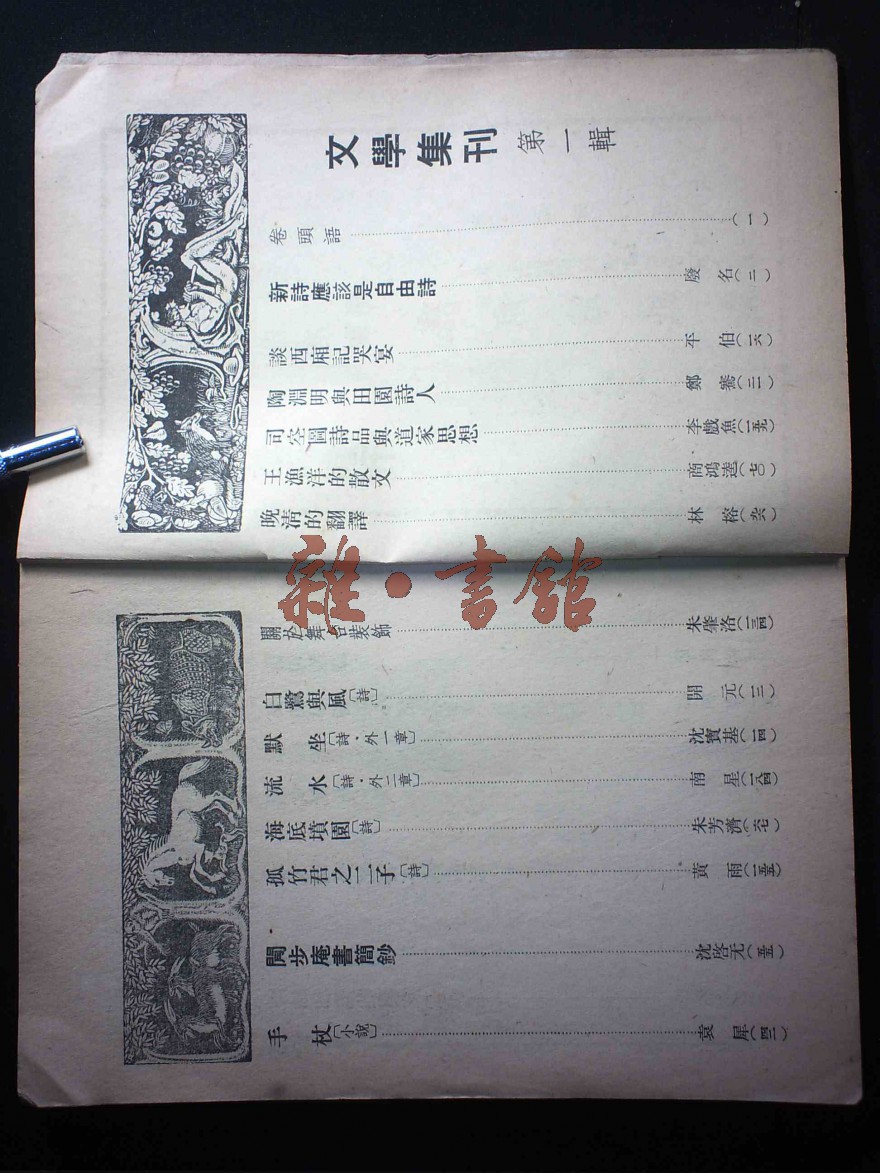 文學集刊 第一輯
卷頭語 (一)
新詩應該是自由詩 廢名(二)
談西廂記哭宴 平伯(一六)
陶淵明與田園詩人 鄭騫(二一)
司空圖詩品與道家思想 李戲魚(一五九)
王漁洋的散文 商鴻逵(七〇)
晚清的翻譯 林榕(九六)
關於舞台裝飾 朱肇洛(一三四)
白鷺與風〔詩〕 開元(一三)
默坐〔詩·外一章〕 沈寶基(一四)
流水〔詩·外二章〕 南星(一八四)
海底墳園〔詩〕 朱芳濟(六七)
孤竹君之二子〔詩〕 黃雨(一五五)
閒步庵書簡鈔 沈啓无(五五)
手杖〔小說〕 袁犀(四二)
雜·書館